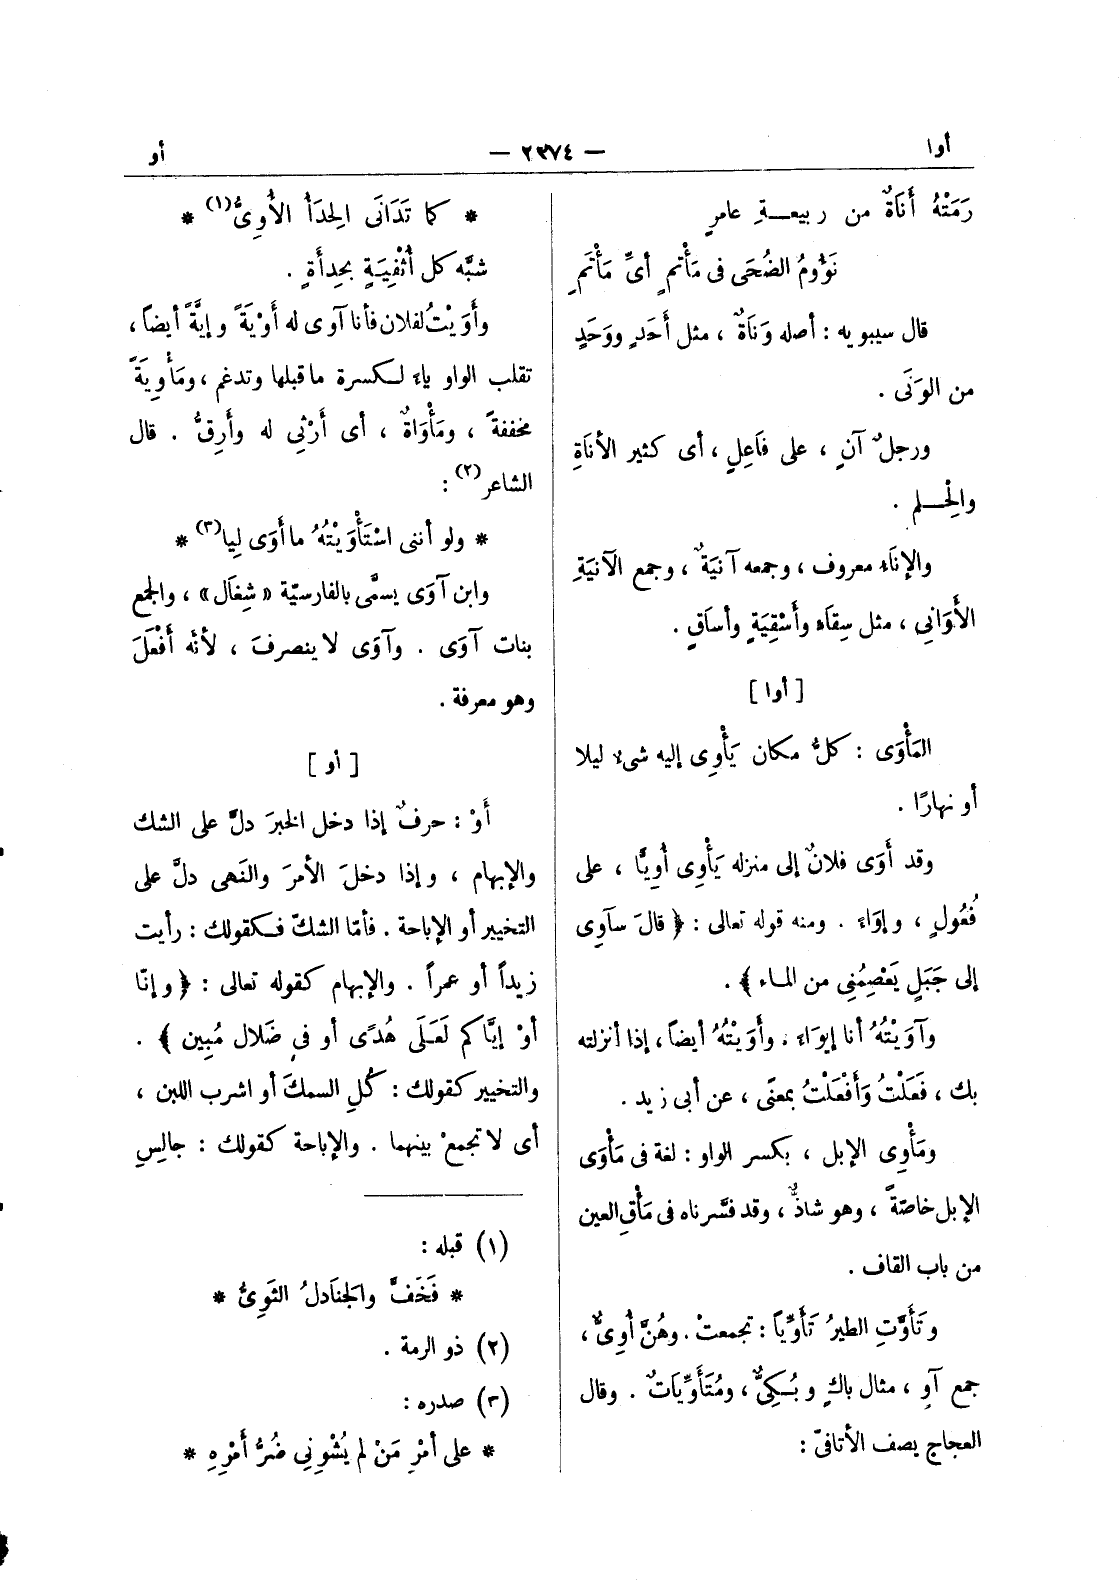 أوا
— ٢٢٧٤ —
أو
رَمَتْهُ أَنَاةٌ من ربيعــةِ عامرٍ
نَؤُومُ الضُحَى فى مَأْتمٍ أىِّ مَأْتَمِ
قال سيبويه : أصله وَنَاةٌ ، مثل أَحَدٍ ووَحَدٍ
من الوَنَى .
ورجلٌ آنٍ ، على فَاعِلٍ ، أى كثير الأَنَاةِ
والِحْــلم .
والإنَاء معروف ، وجمعه آنيَةٌ ، وجمع الآنيَةِ
الأَوَانِى ، مثل سِقَاء وأَسْقِيَةٍ وأساَقٍ .
[ أوا ]
المَأْوَى : كلُّ مكان يَأْوِى إليه شىء ليلا
أو نهارًا .
وقد أَوَى فلانٌ إلى منزله يَأْوِى أُوِيًّا ، على
فُعُولٍ ، وإوَاء . ومنه قوله تعالى : ﴿ قالَ سآوِى
إلى جَبَلٍ يَعْصِمُنِى من المـاء ﴾ .
وآوَيْتُهُ أنا إيوَاء ، وأَوَيْتُهُ أيضاً ، إذا أنزلته
بك ، فَعَلْتُ وَأَفْعَلْتُ بمعنًى ، عن أبى زيد .
ومَأْوِى الإبل ، بكسر الواو : لغة فى مَأْوَى
الإبل خاصّةً ، وهو شاذٌّ ، وقد فسّرناه فى مَأْقِ العين
من باب القاف .
وتَأَوَّتِ الطيرُ تَأَوِّياً : تجمعتْ . وهُنَّ أُوِىٌّ ،
جمع آوٍ ، مثال باكٍ وبُـكِىٌّ ، ومُتَأَوِّيَاتٌ . وقال
العجاج يصف الأثافىّ :
* كما تَدَانَى الِحدَأُ الأُوِىُّ (١) *
شبّه كل أُثْفِيَةٍ بحِدأَةٍ .
وأَوَيْتُ لفلان فأنا آوى له أَوْيَةً وإيَّةً أيضاً ،
تقلب الواو ياء لـكسرة ما قبلها وتدغم ، ومَأْوِيَةً
مخففةً ، ومَأْوَاةٌ ، أى أَرْثِي له وأَرِقُّ . قال
الشاعر (٢) :
* ولو أننى اسْتَأْوَيْتُهُ ما أَوَى لِيا (٣) *
وابن آوَى يسمَّى بالفارسيّة « شِغَال » ، والجمع
بنات آوَى . وآوَى لا ينصرفَ ، لأنّه أَفْعَلَ
وهو معرفة .
[ أو ]
أَوْ : حرفٌ إذا دخل الخبرَ دلَّ على الشك
والإبهام ، وإذا دخلَ الأمرَ والنَهى دلَّ على
التخيير أو الإباحة . فأمّا الشكّ فـكقولك : رأيت
زيداً أو عمراً . والإبهام كقوله تعالى : ﴿ وإنّا
أوْ إيَّاكم لَعَلَى هُدًى أو فى ضَلال مُبِين ﴾ .
والتخيير كقولك : كُلِ السمكَ أو اشرب اللبن ،
أى لا تجمعْ بينهما . والإباحة كقولك : جالِسِ
(١) قبله :
* فَخَفَّ والجَنَادلُ الثَوِىُّ *
(٢) ذو الرمة .
(٣) صدره :
* على أمْرِ مَنْ لم يُشْوِنِى ضُرُّ أَمْرِهِ *